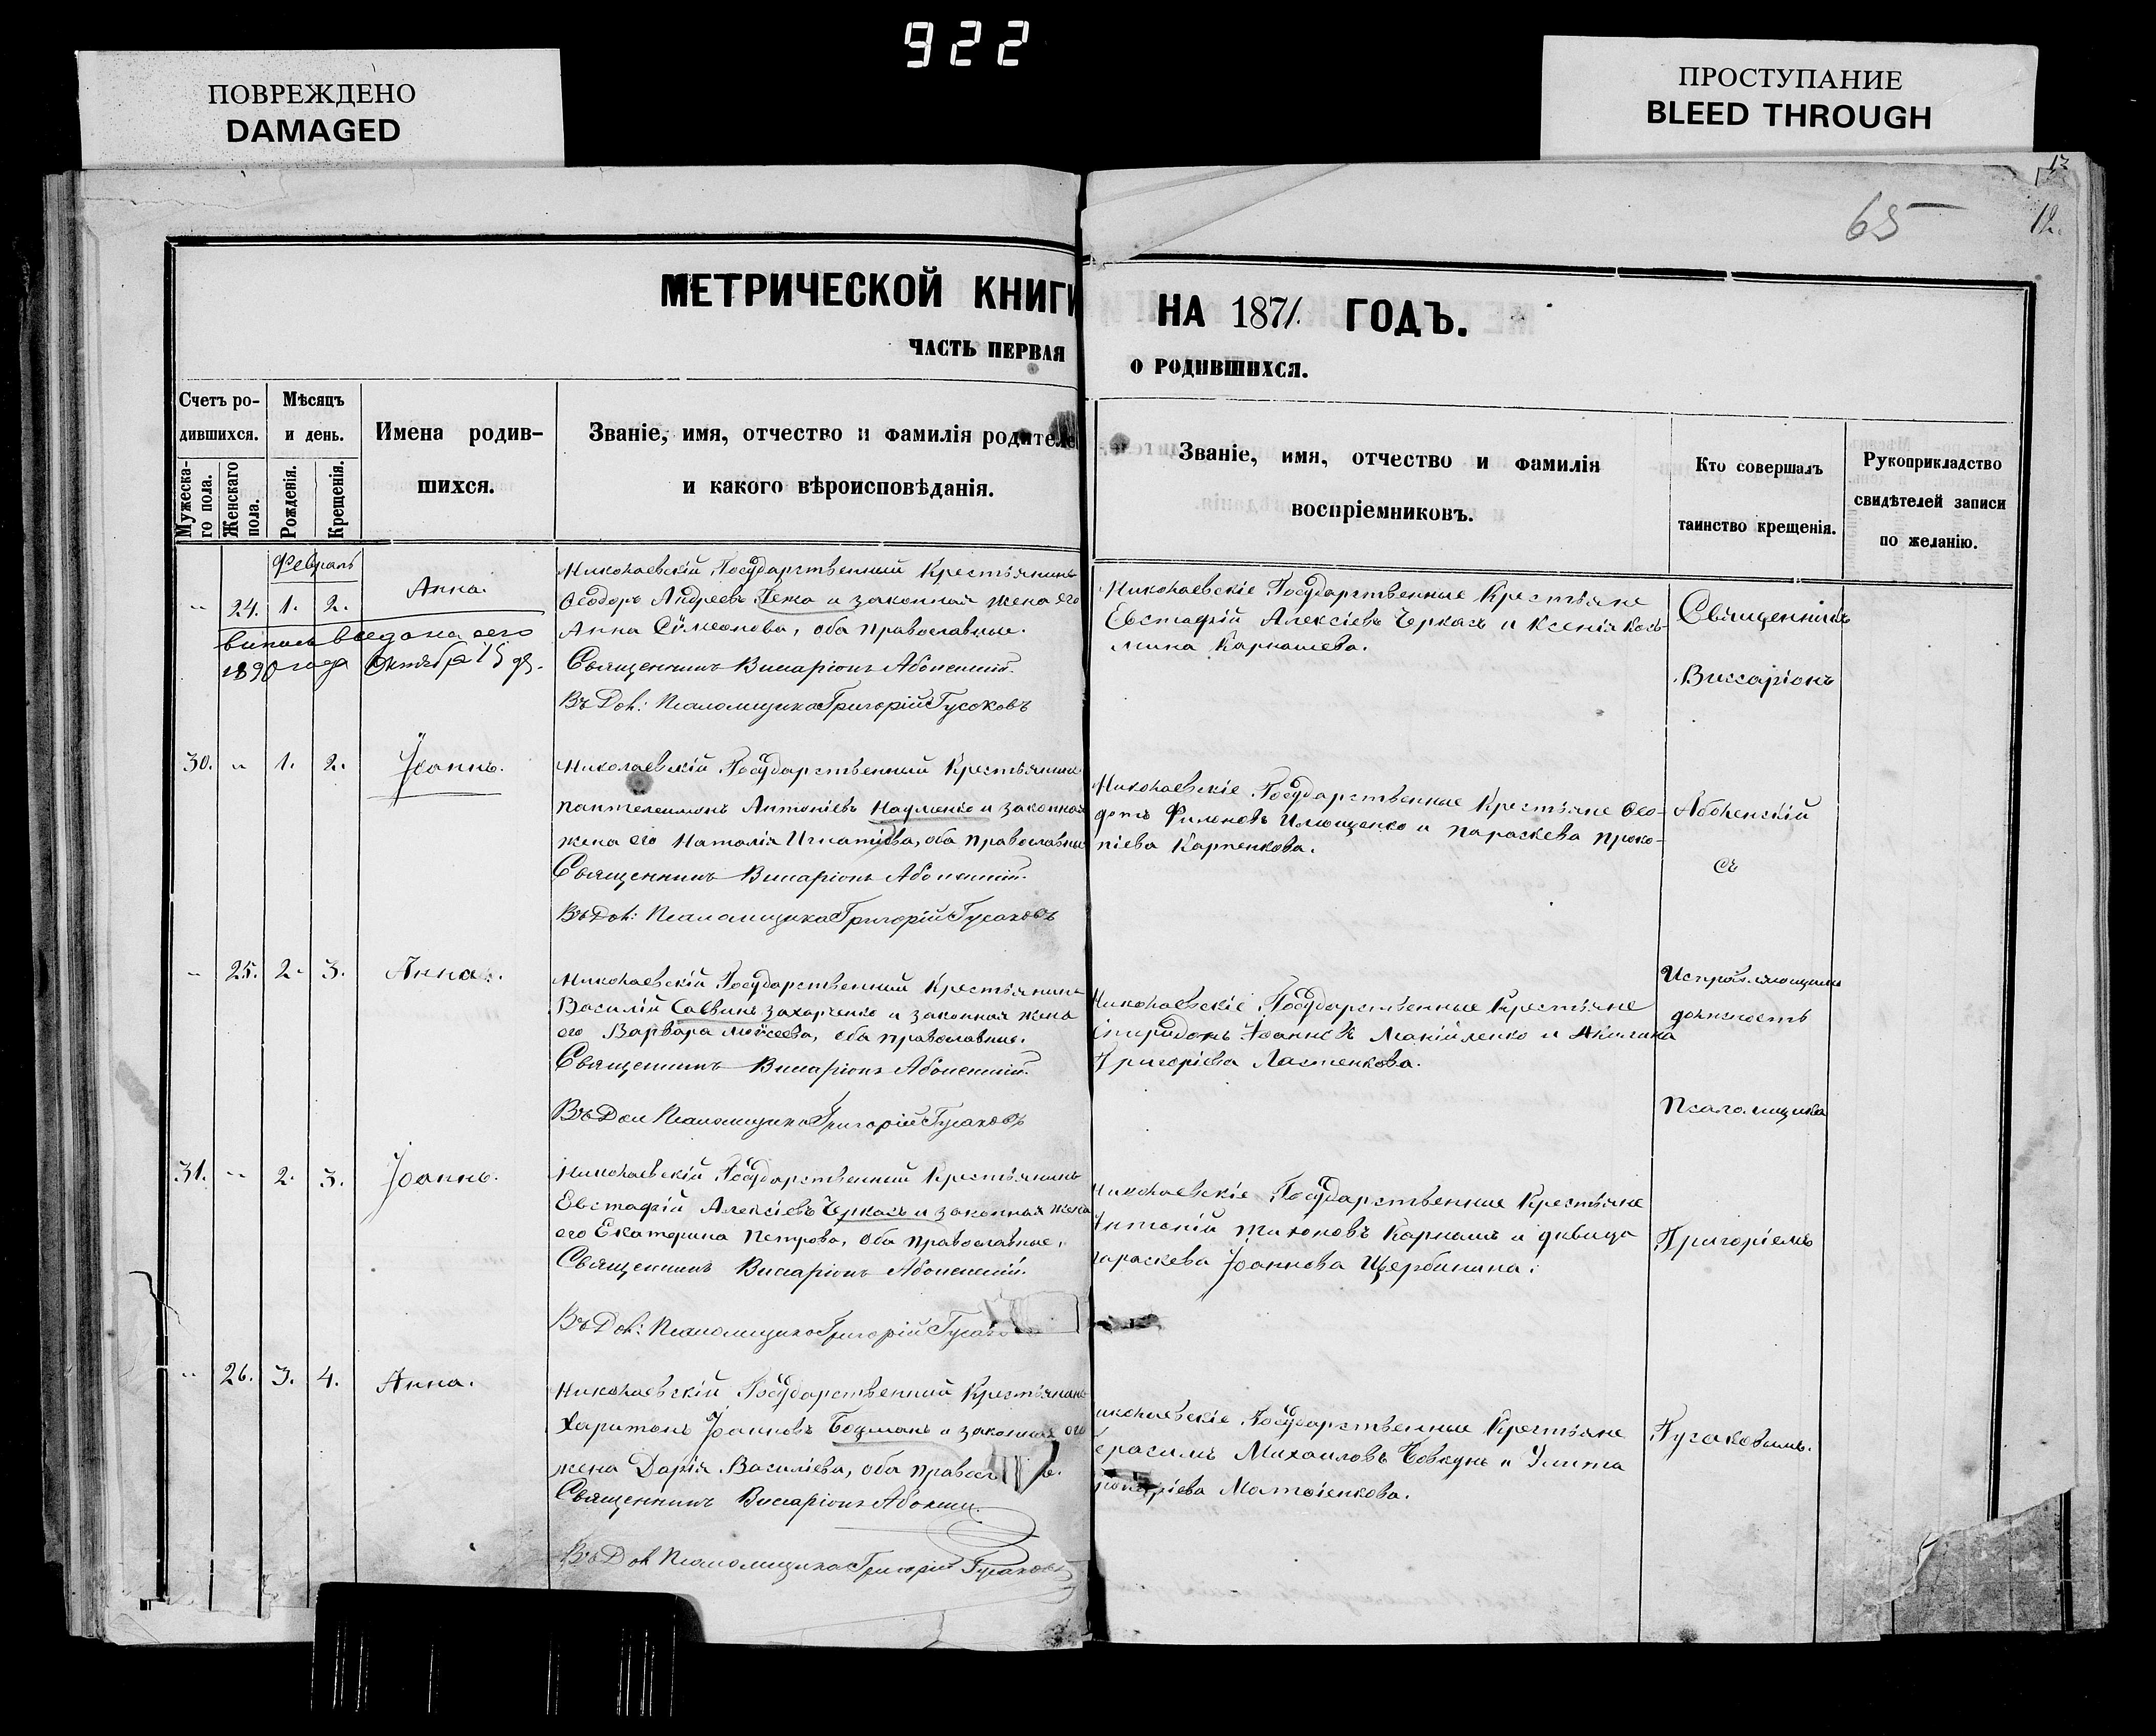 922
ПОВРЕЖДЕНО
DAMAGED
ПРОСТУПАНИЕ
BLEED THROUGH
13
65
12.
МЕТРИЧЕСКОЙ КНИГИ
НА 1871. ГОДЪ.
ЧАСТЬ ПЕРВАЯ
О РОДИВШИХСЯ.
Счетъ ро-
дившихся.
Мужеска-
го пола.
Женскаго
пола.
Мѣсяцъ
и день.
Рожденія.
Крещенія.
Имена родив-
шихся.
Званіе, имя, отчество и фамилія родителе
и какого вѣроисповѣданія.
Званіе, имя, отчество и фамилія
воспріемниковъ.
Кто совершалъ
таинство крещенія.
Рукоприкладство
свидѣтелей записи
по желанію.
Февраль
" 24. 1. 2. Анна.
выпись выдана сего
1890 года Октября 15 дн.
Николаевскій Государственный Крестьянинъ
Ѳеодоръ Андреевъ Лежа и законная жена его
Анна Сѵмеонова, оба православные.
Священникъ Виссаріонъ Абоненскій.
Въ Дол: Псаломщика Григорій Гусаковъ
Николаевскіе Государственные Крестьяне
Евстафій Алексіевъ Черкасъ и Ксенія Козь-
мина Карнашева.
30. " 1. 2. Іоаннъ.
Николаевскій Государственный Крестьянинъ
Пантелеимонъ Антоніевъ Науменко и законная
жена его Наталія Игнатіева, оба православные
Священникъ Виссаріонъ Абоненскій.
Въ Дол: Псаломщика Григорій Гусаковъ
Николаевскіе Государственные Крестьяне Ѳео-
дотъ Филоновъ Илющенко и Параскева Проко-
піева Карпенкова.
" 25. 2. 3. Анна.
Николаевскій Государственный Крестьянинъ
Василій Саввинъ Захарченко и законная жена
его Варвара Моѵсеева, оба православные.
Священникъ Виссаріонъ Абоненскій.
Въ Дол Псаломщика Григорій Гусаковъ
Николаевскіе Государственные Крестьяне
Спиридонъ Іоанновъ Манійленко и Акилина
Григоріева Ластенкова.
31. " 2. 3. Іоаннъ.
Николаевскій Государственный Крестьянинъ
Евстафій Алексіевъ Черкасъ и законная жена
его Екатерина Петрова, оба православные,
Священникъ Виссаріонъ Абоненскій.
Въ Дол: Псаломщика Григорій Гусаковъ
Николаевскіе Государственные Крестьяне
Антоній Тихоновъ Карнашъ и девица
Параскева Іоаннова Щербинина.
" 26. 3. 4. Анна.
Николаевскій Государственный Крестьянинъ
Харитонъ Іоанновъ Боцманъ и законная его
жена Дарія Василіева, оба правосл
Священникъ Виссаріонъ Абоненскій
Въ Дол Псаломщика Григорій Гусаковъ
иколаевскіе Государственные Крестьяне
ерасимъ Михаиловъ Човкунъ и Улита
ріева Матвіенкова.
Священникъ
Виссаріонъ
Абоненскій
съ
Исправляющимъ
должность
Псаломщика
Григоріемъ
Гусаковымъ.